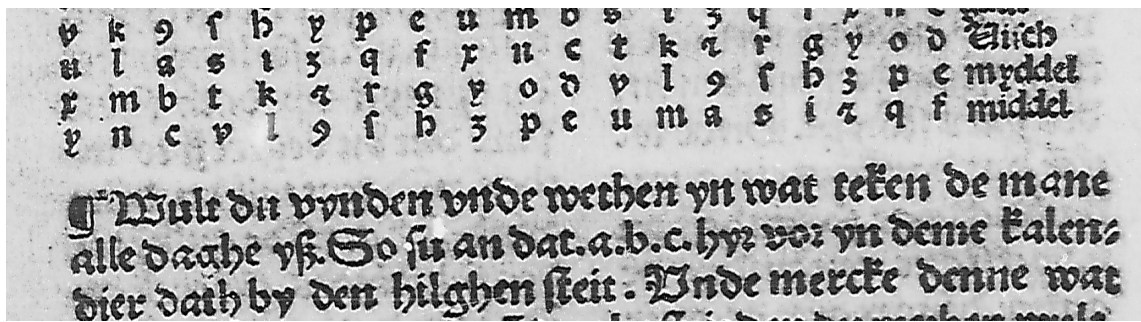 v k 9 ſ h y p e u m
u l a s i z q f x n c t k ꝛ r g y o d Viſch
x m b t k ꝛ r g y o d v l 9 ſ h z p e myddel
y n c v l 9 ſ h z p e u m a s i ꝛ q f middel
¶ Wult du vynden vnde wethen yn wat teken de mane
alle daghe yß. So ſu an dat .a.b.c. hyꝛ voꝛ yn deme kalen⸗
dier dath by den hilghen ſteit. Vnde mercke denne wat